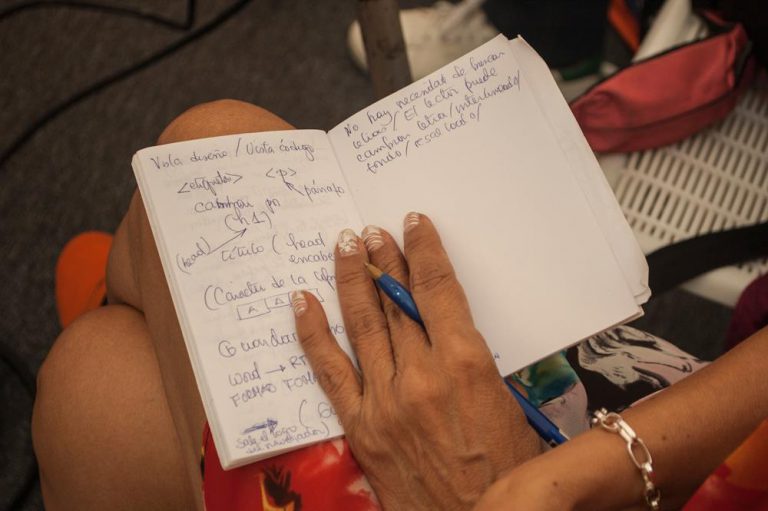 Vista diseño / Vista código
<etiquetas> <p>
párrafo
cambiar po
(h1)
(head)
título (head
encabe
(Caracter de la
A A
Guardar
word → RT
FORMATO FORMA
Sale el logo
del navegador
No hay necesidad de buscar
letras / El lector puede
cambiar letra / interlineado /
fondo /